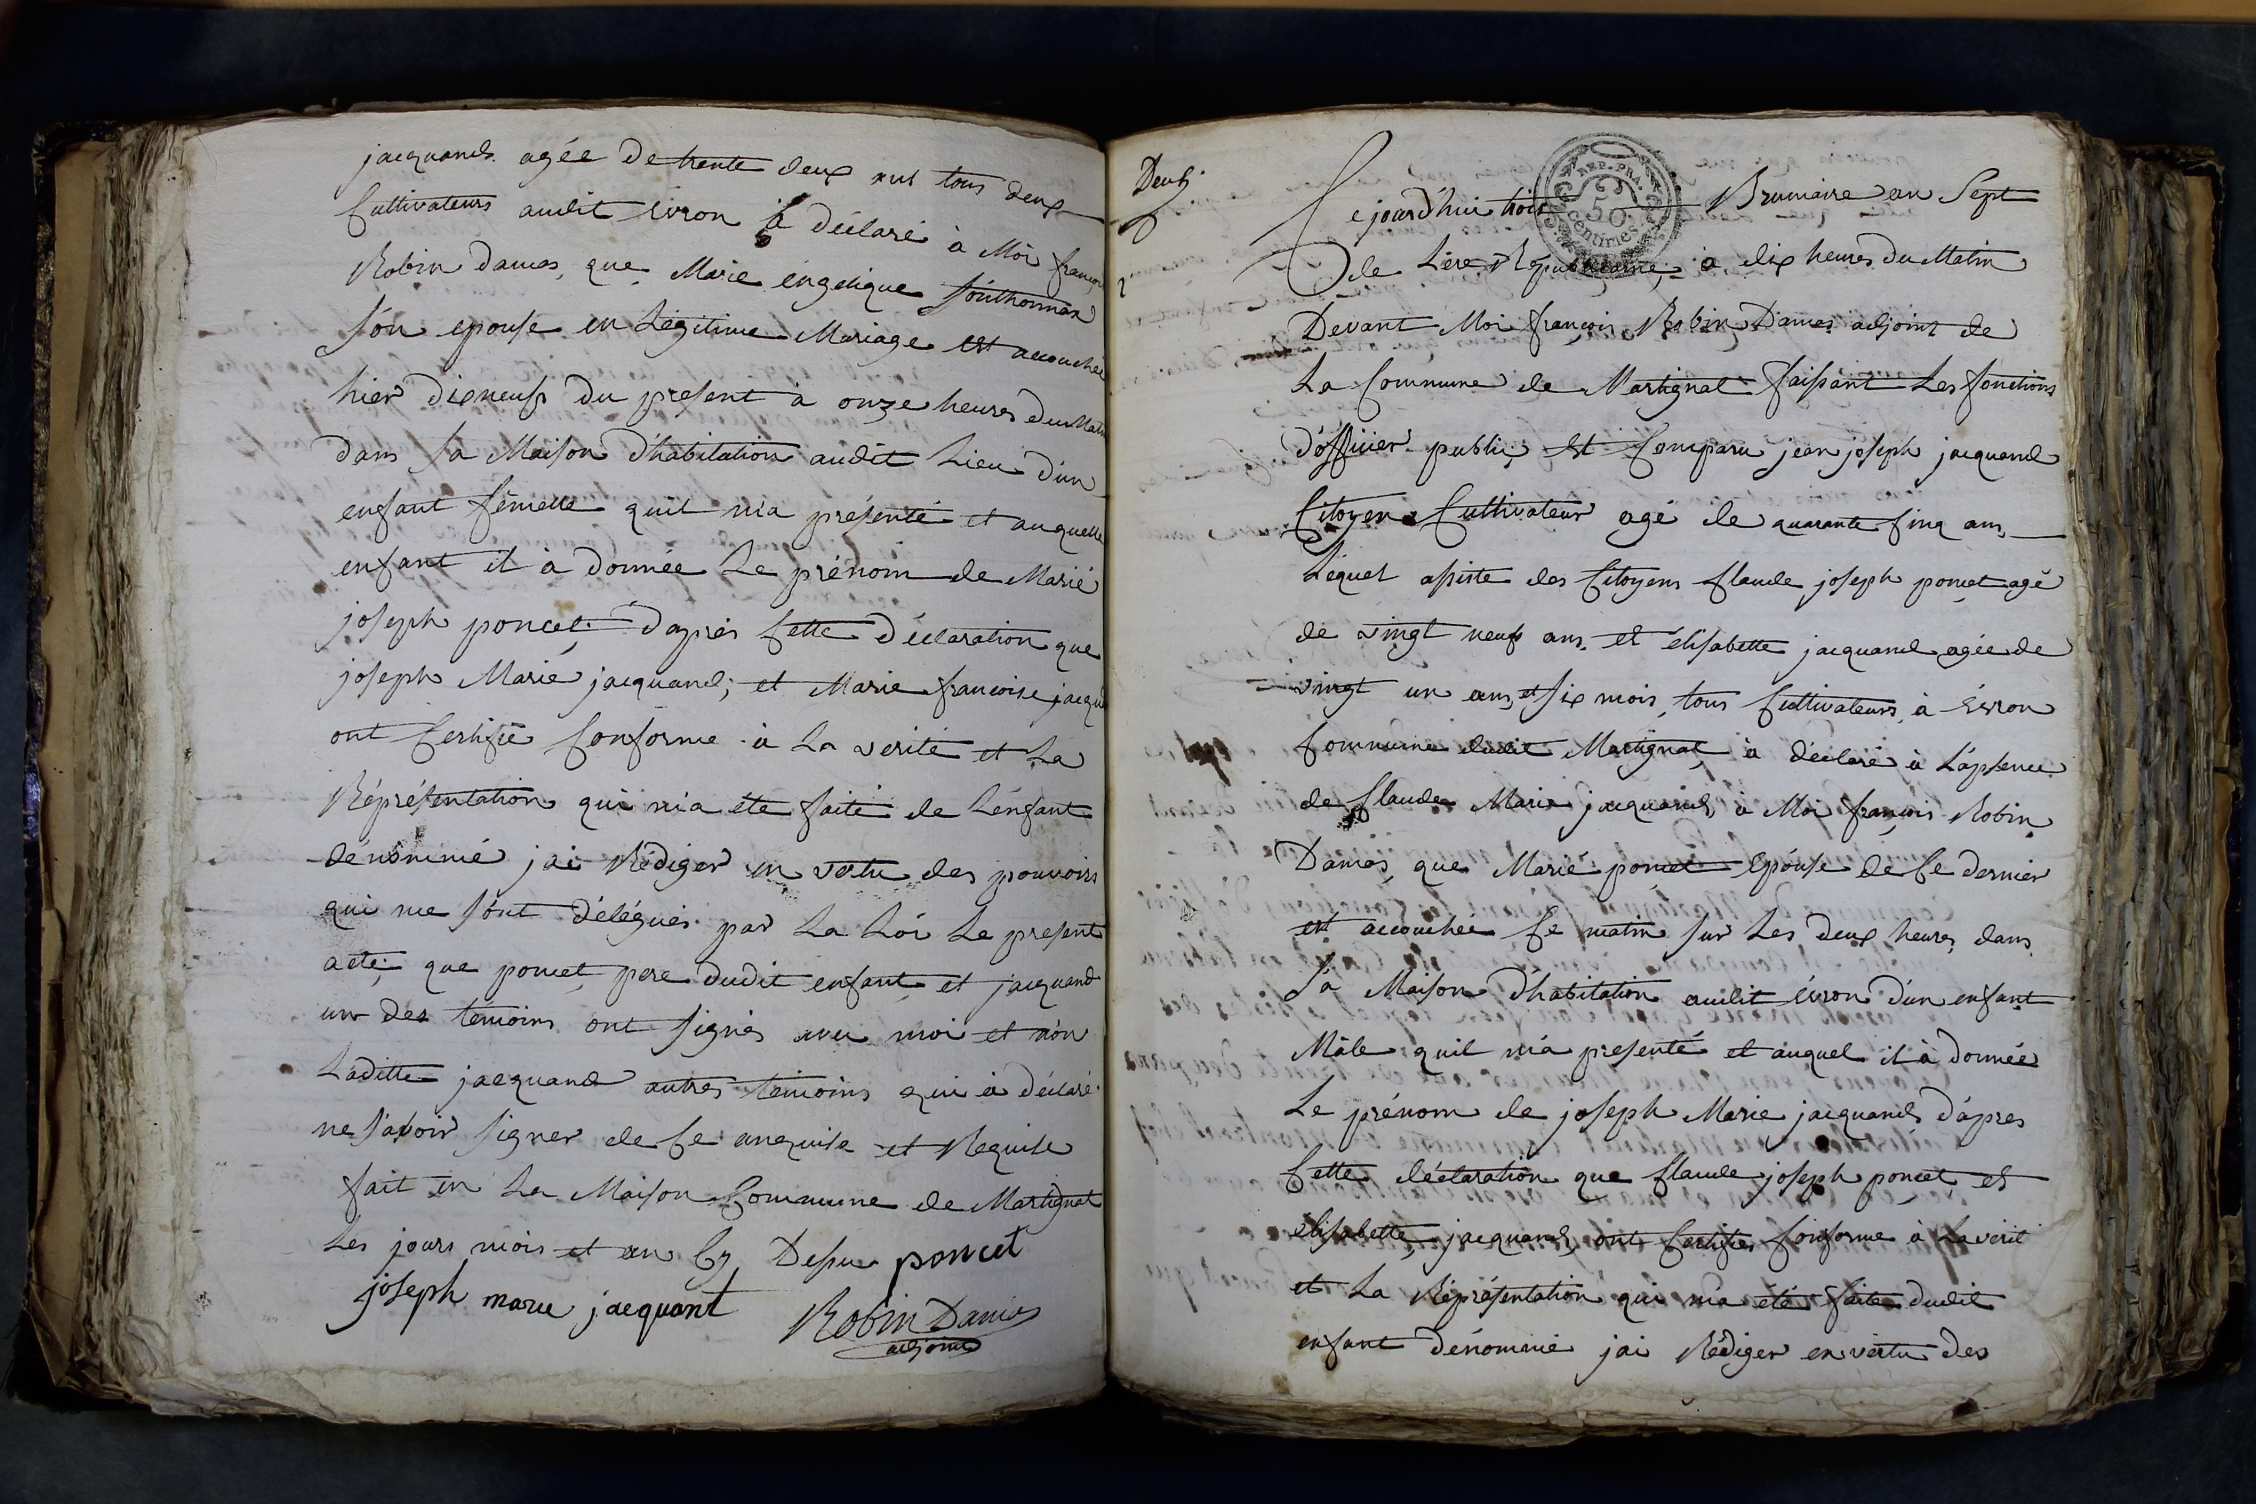 jacquand agée de trente deux ans tous deux
Cultivateurs audit Evron à déclaré à Moi françois
Robin Damas, que Marie engelique
son epouse en Légitime Mariage est accouchée
hier dixneuf du present à onze heures du Matin
dans sa Maison d'habitation audit Lieu d'un
enfant femelle quil m'a présenté et auquelle
enfant il à donnée Le prénom de Marie
joseph poncet; d'après Cette Déclaration que
joseph Marie jacquand; et Marie francoise jacqu
ont Certifié Conforme à La verité et La
Réprésentation qui m'a été faite de L'enfant
dénommé jai Rédiger en vertu des pouvoirs
qui me sont délégués par La Loi Le present
acte; que poncet, pere dudit enfant, et jacquand
un des temoins ont signés avec moi et non
Laditte jacquand autres temoins qui à déclaré
ne savoir signer de Ce enquise et Requise
fait en La Maison Commune de Martignat
Les jours mois et an Cy Dessu poncet
joseph marie jacquant Robin Damas
adjoint
Deuxj.
2
Cejourd'hui trois Brumaire an Sept
REP. FRA.
50
Centimes
de L'ère Républicaine, à dix heures du Matin
Devant Moi françois Robin Damas adjoint de
La Commune de Martignat faissant Les fonctions
d'officier public, est Comparu jean joseph jacquand
Citoyen Cultivateur agé de quarante sinq ans,
Lequel assiste des Citoyens Claude joseph poncet agé
de vingt neuf ans, et élisabette jacquand agée de
vingt un ans, et six mois, tous Cultivateurs, à Evron
Commune dudit Martignat, à déclaré à L'apsence
de Claude Marie jacquand, à Moi françois Robin
Damas, que Marie poncet Epouse de Ce dernier
est accouchée Ce matin sur Les deux heures, dans
sa Maison d'habitation audit Evron d'un enfant
Mâle quil m'a presenté et auquel il à donnée
Le prénom de joseph Marie jacquand, d'apres
Cette déclaration que Claude joseph poncet, et
élisabette, jacquand, ont Certifiés Conforme à La verité
et La Réprésentation qui m'a été faite dudit
enfant dénommé jai Rédiger en vertu des